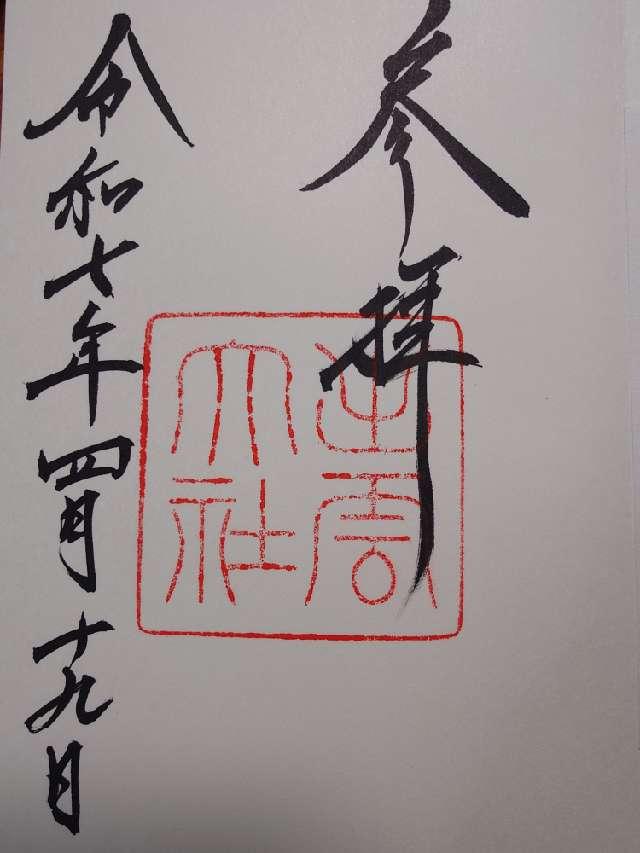 参拝
出雲大社
令和七年四月十九日